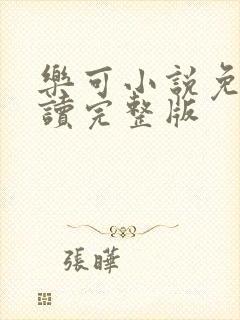 樂可小說免
讀完整版
張曄